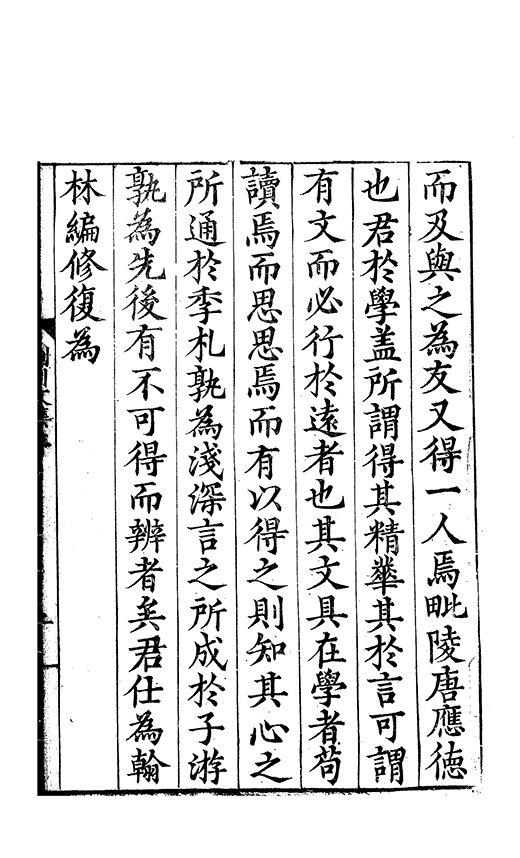 而及與之為友又得一人焉毗陵唐應德
也君於學盖所謂得其精華其於言可謂
有文而必行於遠者也其文具在學者苟
讀焉而思思焉而有以得之則知其心之
所通於季札孰為淺深言之所成於子游
孰為先後有不可得而辨者矣君仕為翰
林編修復為